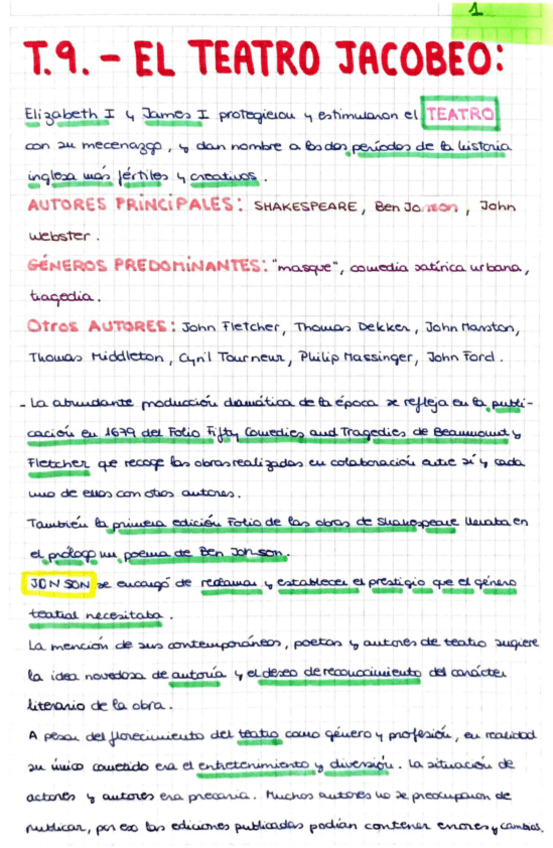 1
T.9.- EL TEATRO JACOBEO:
Elizabeth I y James I protegieron y estimularon el TEATRO
con su mecenazgo, y dan nombre a los dos períodos de la historia
inglesa más fértiles y creativos.
AUTORES PRINCIPALES: SHAKESPEARE, Ben Jonson, John
Webster.
GÉNEROS PREDOMINANTES: "masque", comedia satírica urbana,
tragedia.
Otros AUTORES: John Fletcher, Thomas Dekker, John Marston,
Thomas Middleton, Cyril Tourneur, Philip Massinger, John Ford.
- La abundante producción dramática de la época se refleja en la publi-
cación en 1679 del Folio Fifty Comedies and Tragedies de Beaumound y
Fletcher que recoge las obras realizadas en colaboración entre sí y cada
uno de ellos con otros autores.
También la primera edición Folio de las obras de Shakespeare llevaba en
el prólogo un poema de Ben Jonson.
JONSON se encargó de reclamar y establecer el prestigio que el género
teatral necesitaba.
La mención de sus contemporáneos, poetas y autores de teatro sugiere
la idea novedosa de autoría y el deseo de reconocimiento del carácter
literario de la obra.
A pesar del florecimiento del teatro como género y profesión, en realidad
su único cometido era el entretenimiento y diversión. La situación de
actores y autores era precaria. Muchos autores no se preocuparon de
publicar, por eso las ediciones publicadas podían contener errores y cambios.